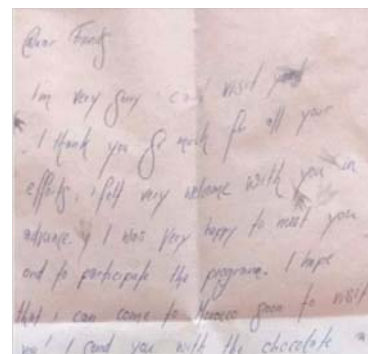 Dear
I'm very sorry can't visit you
I thank you so much for all your
efforts, i felt very welcome with you in
advance. I was very happy to meet you
and to participate the programe. I hope
that i can come to Morocco soon to visit
you! I send you with the chocolate a